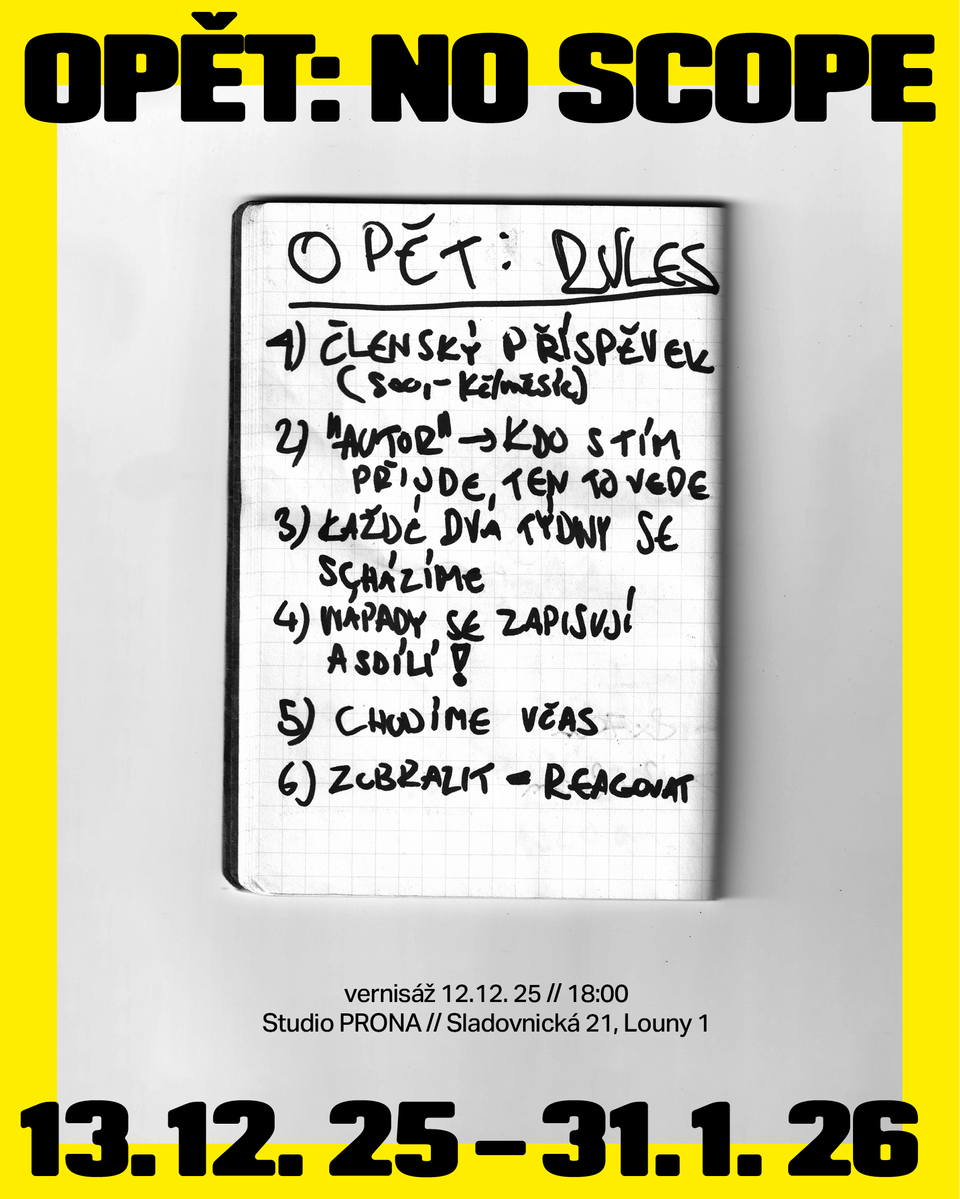 OPĚT: NO SCOPE
OPĚT: RULES
1) ČLENSKÝ PŘÍSPĚVEK
(500,- Kč/měsíc)
2) "AUTOR" → KDO S TÍM
PŘIJDE, TEN TO VEDE
3) KAŽDÉ DVA TÝDNY SE
SCHÁZÍME
4) NÁPADY SE ZAPISUJÍ
A SDÍLÍ!
5) CHODÍME VČAS
6) ZOBRAZIT = REAGOVAT
vernisáž 12.12. 25 // 18:00
Studio PRONA // Sladovnická 21, Louny 1
13.12. 25 – 31.1. 26